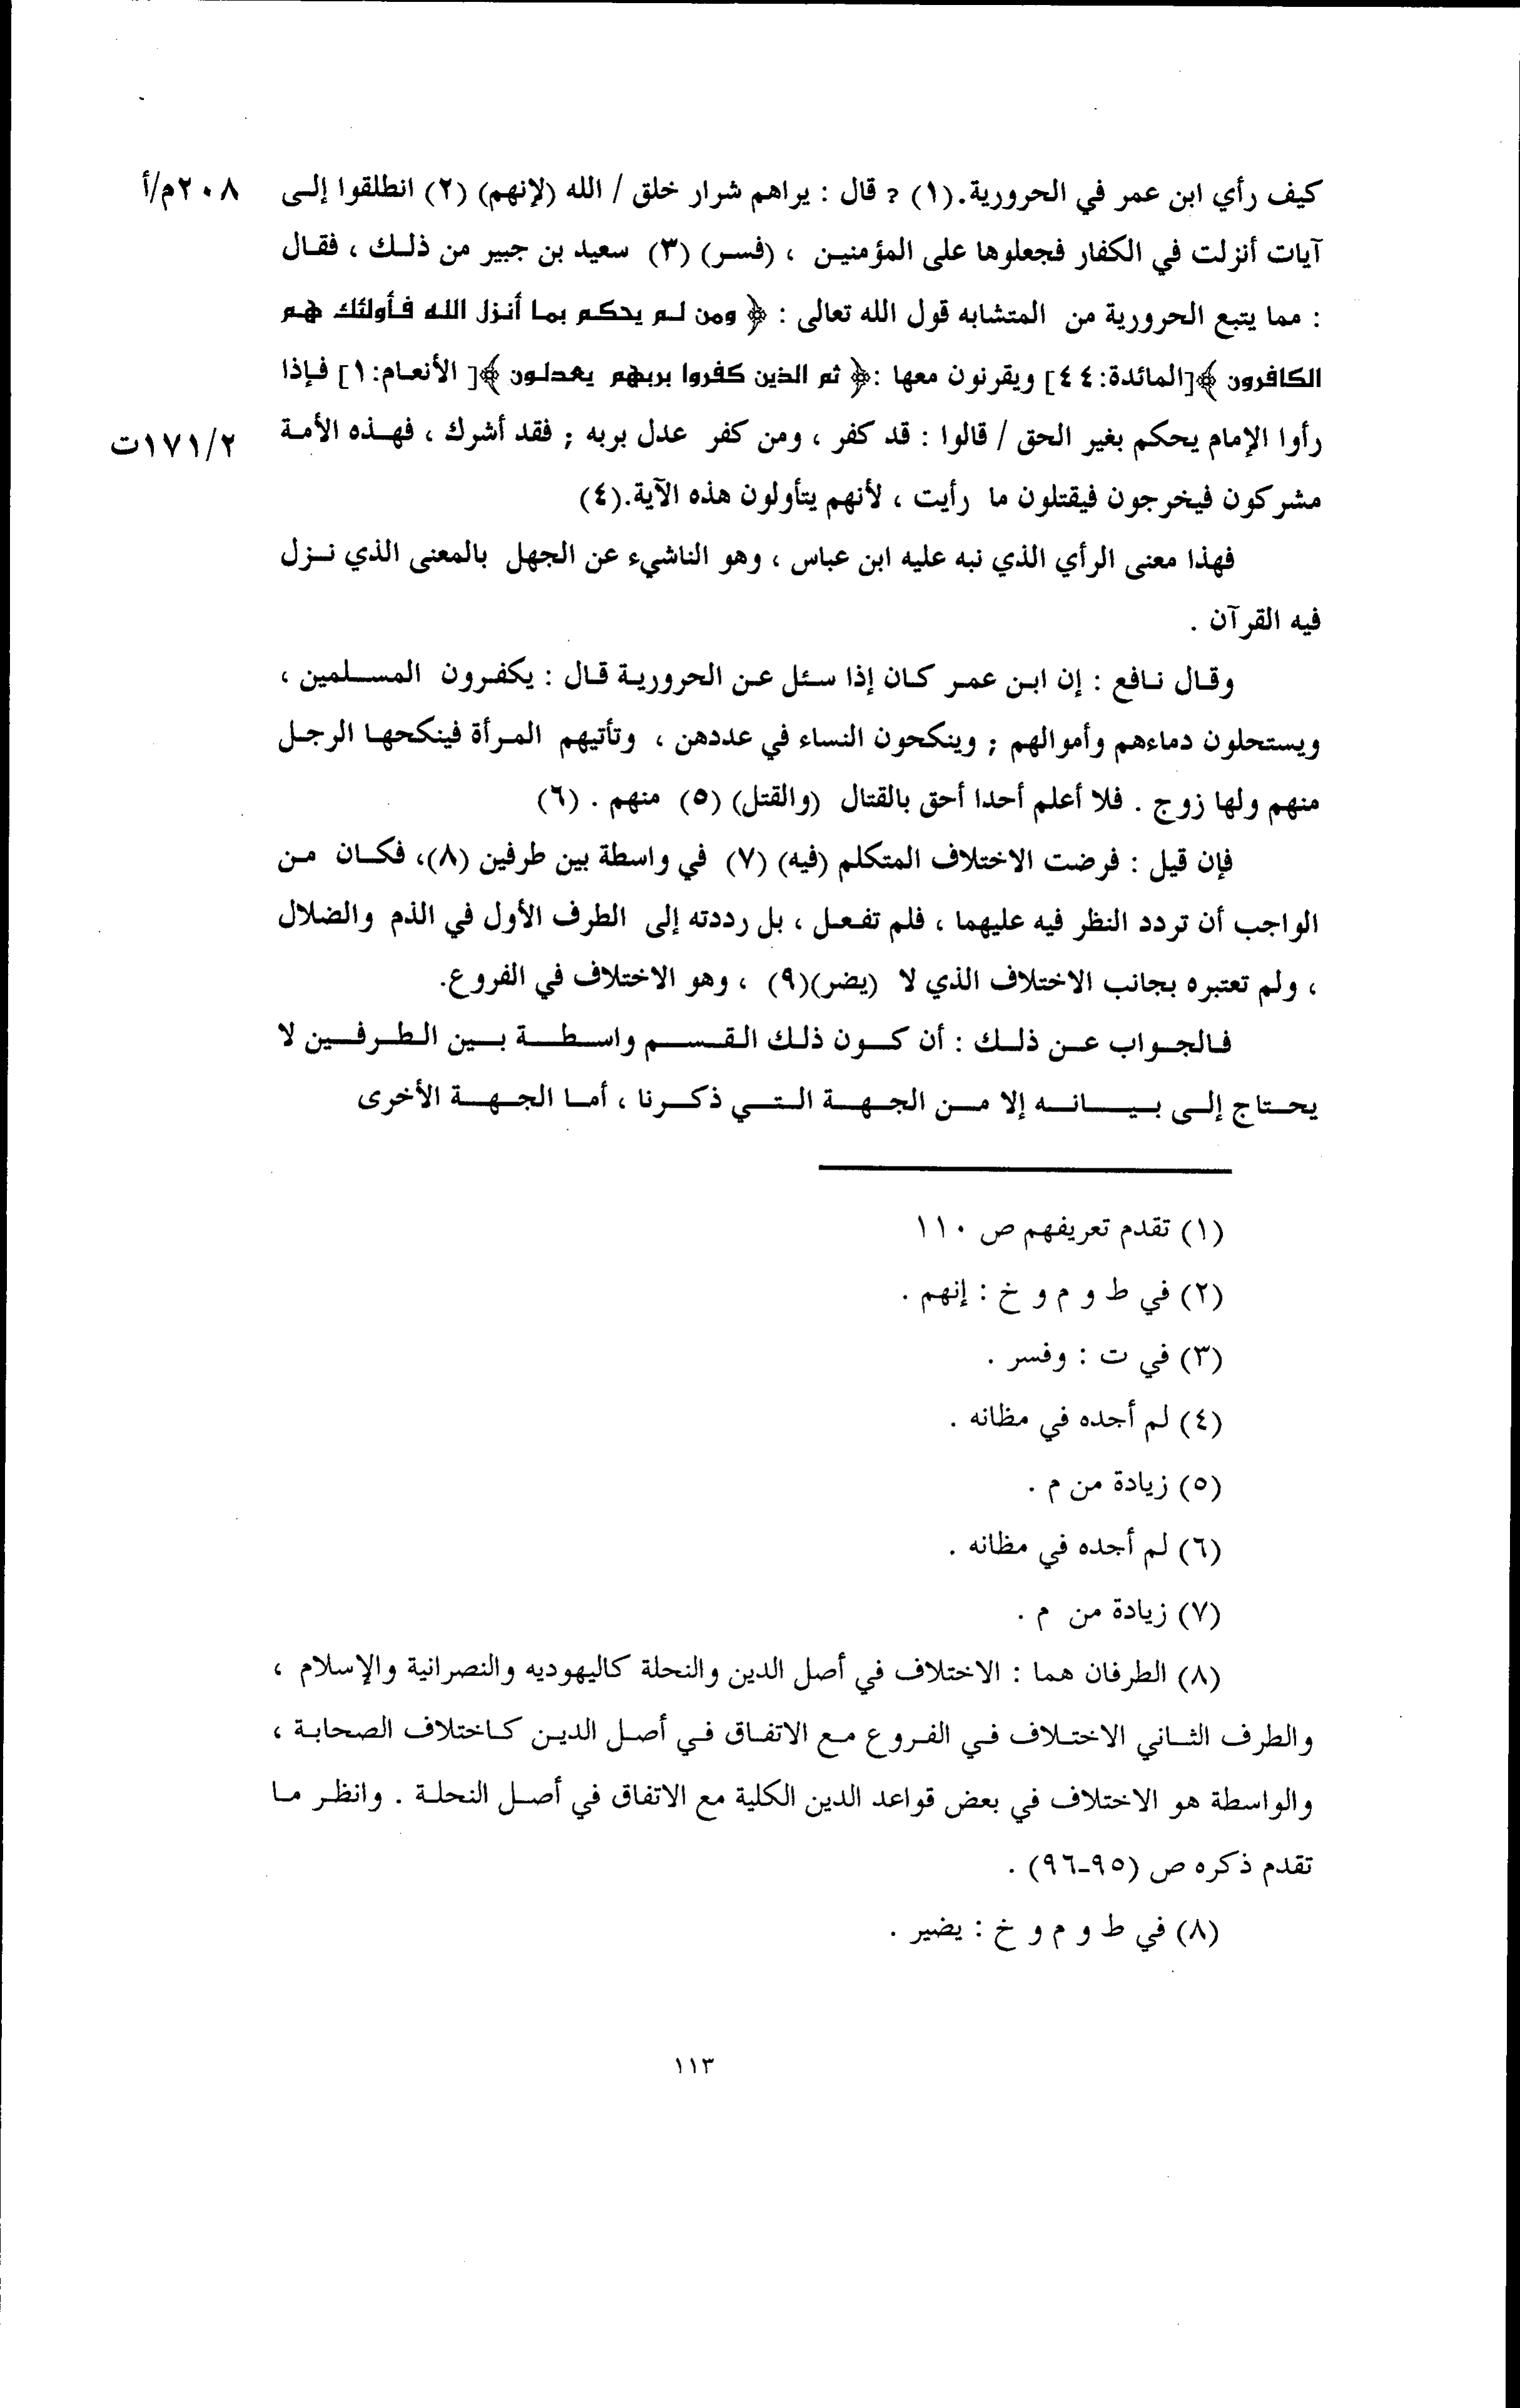 كيف رأي ابن عمر في الحرورية.(١) ? قال : يراهم شرار خلق / الله (لإنهم) (٢) انطلقوا إلى ٢٠٨م/أ
آيات أنزلت في الكفار فجعلوها على المؤمنين ، (فسر) (٣) سعيد بن جبير من ذلك ، فقال
: مما يتبع الحرورية من المتشابه قول الله تعالى : ﴿ ومن لم يحكم بما أنزل الله فأولئك هم
الكافرون ﴾[المائدة:٤٤] ويقرنون معها :﴿ ثم الذين كفروا بربهم يعدلون ﴾[ الأنعام:١] فإذا
رأوا الإمام يحكم بغير الحق / قالوا : قد كفر ، ومن كفر عدل بربه ; فقد أشرك ، فهذه الأمة ١٧١/٢ت
مشركون فيخرجون فيقتلون ما رأيت ، لأنهم يتأولون هذه الآية.(٤)
فهذا معنى الرأي الذي نبه عليه ابن عباس ، وهو الناشيء عن الجهل بالمعنى الذي نزل
فيه القرآن .
وقال نافع : إن ابن عمر كان إذا سئل عن الحرورية قال : يكفرون المسلمين ،
ويستحلون دماءهم وأموالهم ; وينكحون النساء في عددهن ، وتأتيهم المرأة فينكحها الرجل
منهم ولها زوج . فلا أعلم أحدا أحق بالقتال (والقتل) (٥) منهم . (٦)
فإن قيل : فرضت الاختلاف المتكلم (فيه) (٧) في واسطة بين طرفين (٨)، فكان من
الواجب أن تردد النظر فيه عليهما ، فلم تفعل ، بل رددته إلى الطرف الأول في الذم والضلال
، ولم تعتبره بجانب الاختلاف الذي لا (يضر)(٩) ، وهو الاختلاف في الفروع.
فالجواب عن ذلك : أن كون ذلك القسم واسطة بين الطرفين لا
يحتاج إلى بيانه إلا من الجهة التي ذكرنا ، أما الجهة الأخرى
(١) تقدم تعريفهم ص ١١٠
(٢) في ط و م و خ : إنهم .
(٣) في ت : وفسر .
(٤) لم أجده في مظانه .
(٥) زيادة من م .
(٦) لم أجده في مظانه .
(٧) زيادة من م .
(٨) الطرفان هما : الاختلاف في أصل الدين والنحلة كاليهوديه والنصرانية والإسلام ،
والطرف الثاني الاختلاف في الفروع مع الاتفاق في أصل الدين كاختلاف الصحابة ،
والواسطة هو الاختلاف في بعض قواعد الدين الكلية مع الاتفاق في أصل النحلة . وانظر ما
تقدم ذكره ص (٩٥-٩٦) .
(٨) في ط و م و خ : يضير .
١١٣